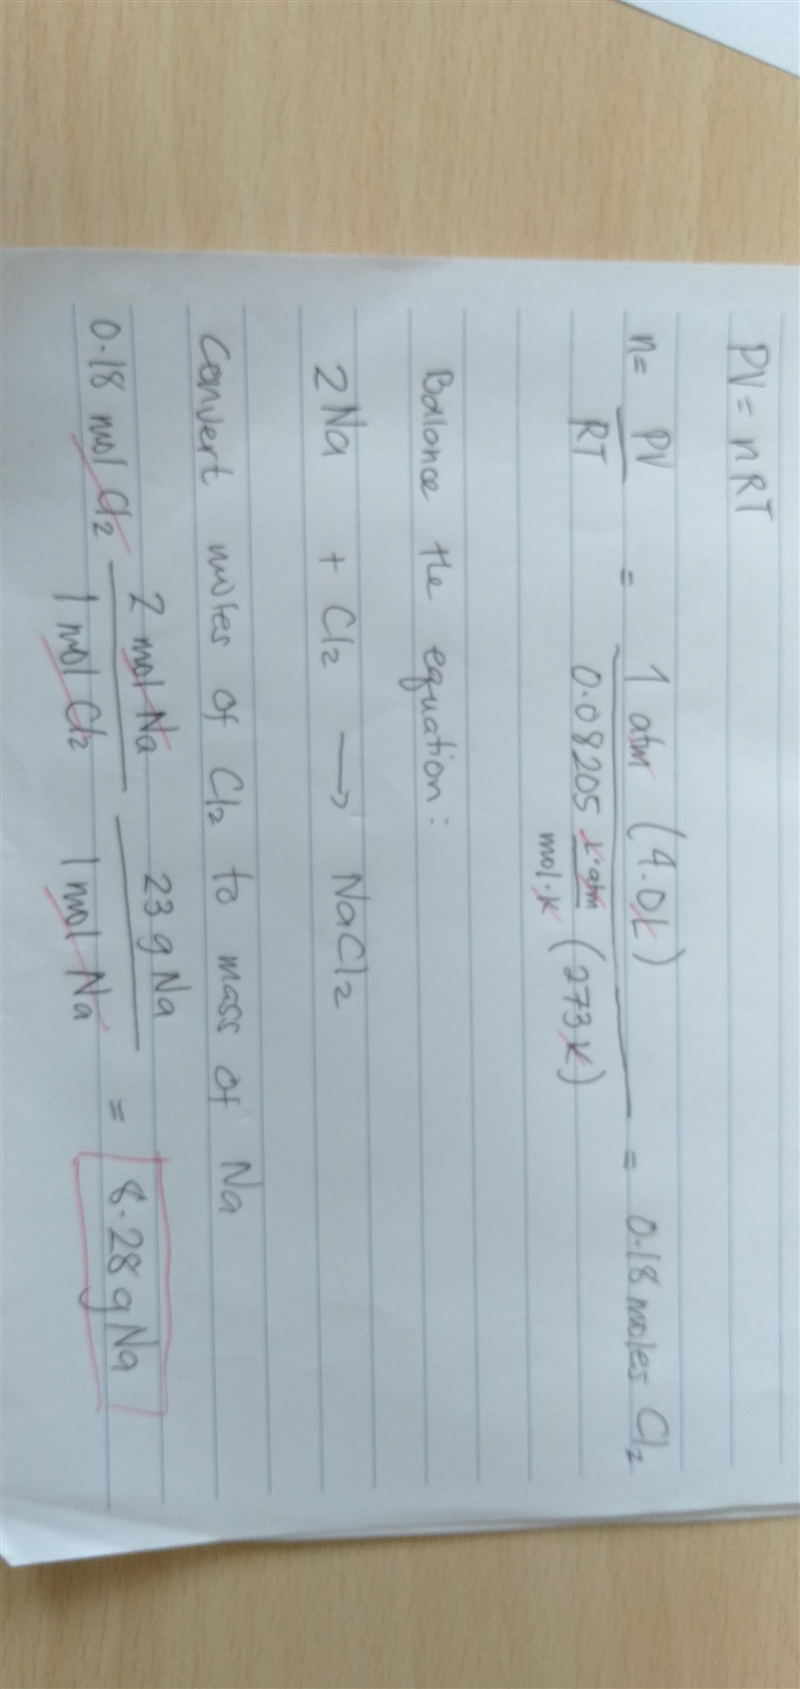 PV = nRT
n = PV/RT = 1 atm (4.0L) / 0.08205 L·atm/mol·K (273K) = 0.18 moles Cl2
Balance the equation:
2Na + Cl2 → NaCl2
Convert moles of Cl2 to mass of Na
0.18 mol Cl2 2 mol Na/1 mol Cl2 23 g Na/1 mol Na = 8.28 g Na